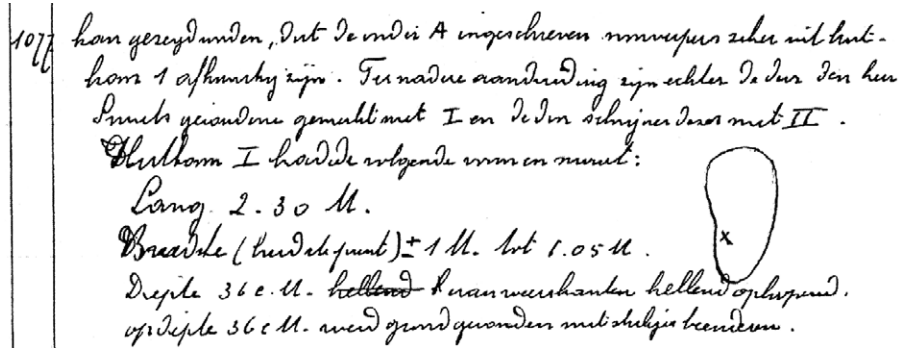 1077 kan gezegd worden, dat de onder A ingeschreven voorwerpen zeker uit hut-
kom 1 afkomstig zijn. Ter nadere aanduiding zijn echter de door den heer
Smeets gevondene gemerkt met I en de den schrijver dezes met II.
Hutkom I had de volgende vorm en maat:
Lang 2.30 M.
Breedte (breedste punt) ± 1 M. tot 1.05 M.
Diepte 36 c.M. hellend & van weerskanten hellend oploopend.
op diepte 36 c M. werd grond gevonden met stukjes beenderen.
x